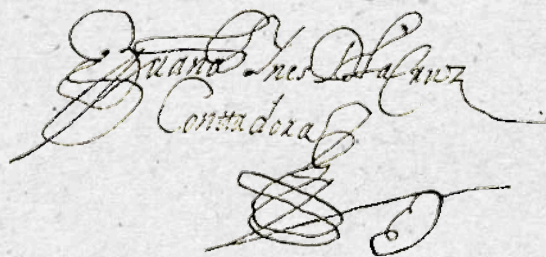 Juana Ines DlaCruz
Conttadora